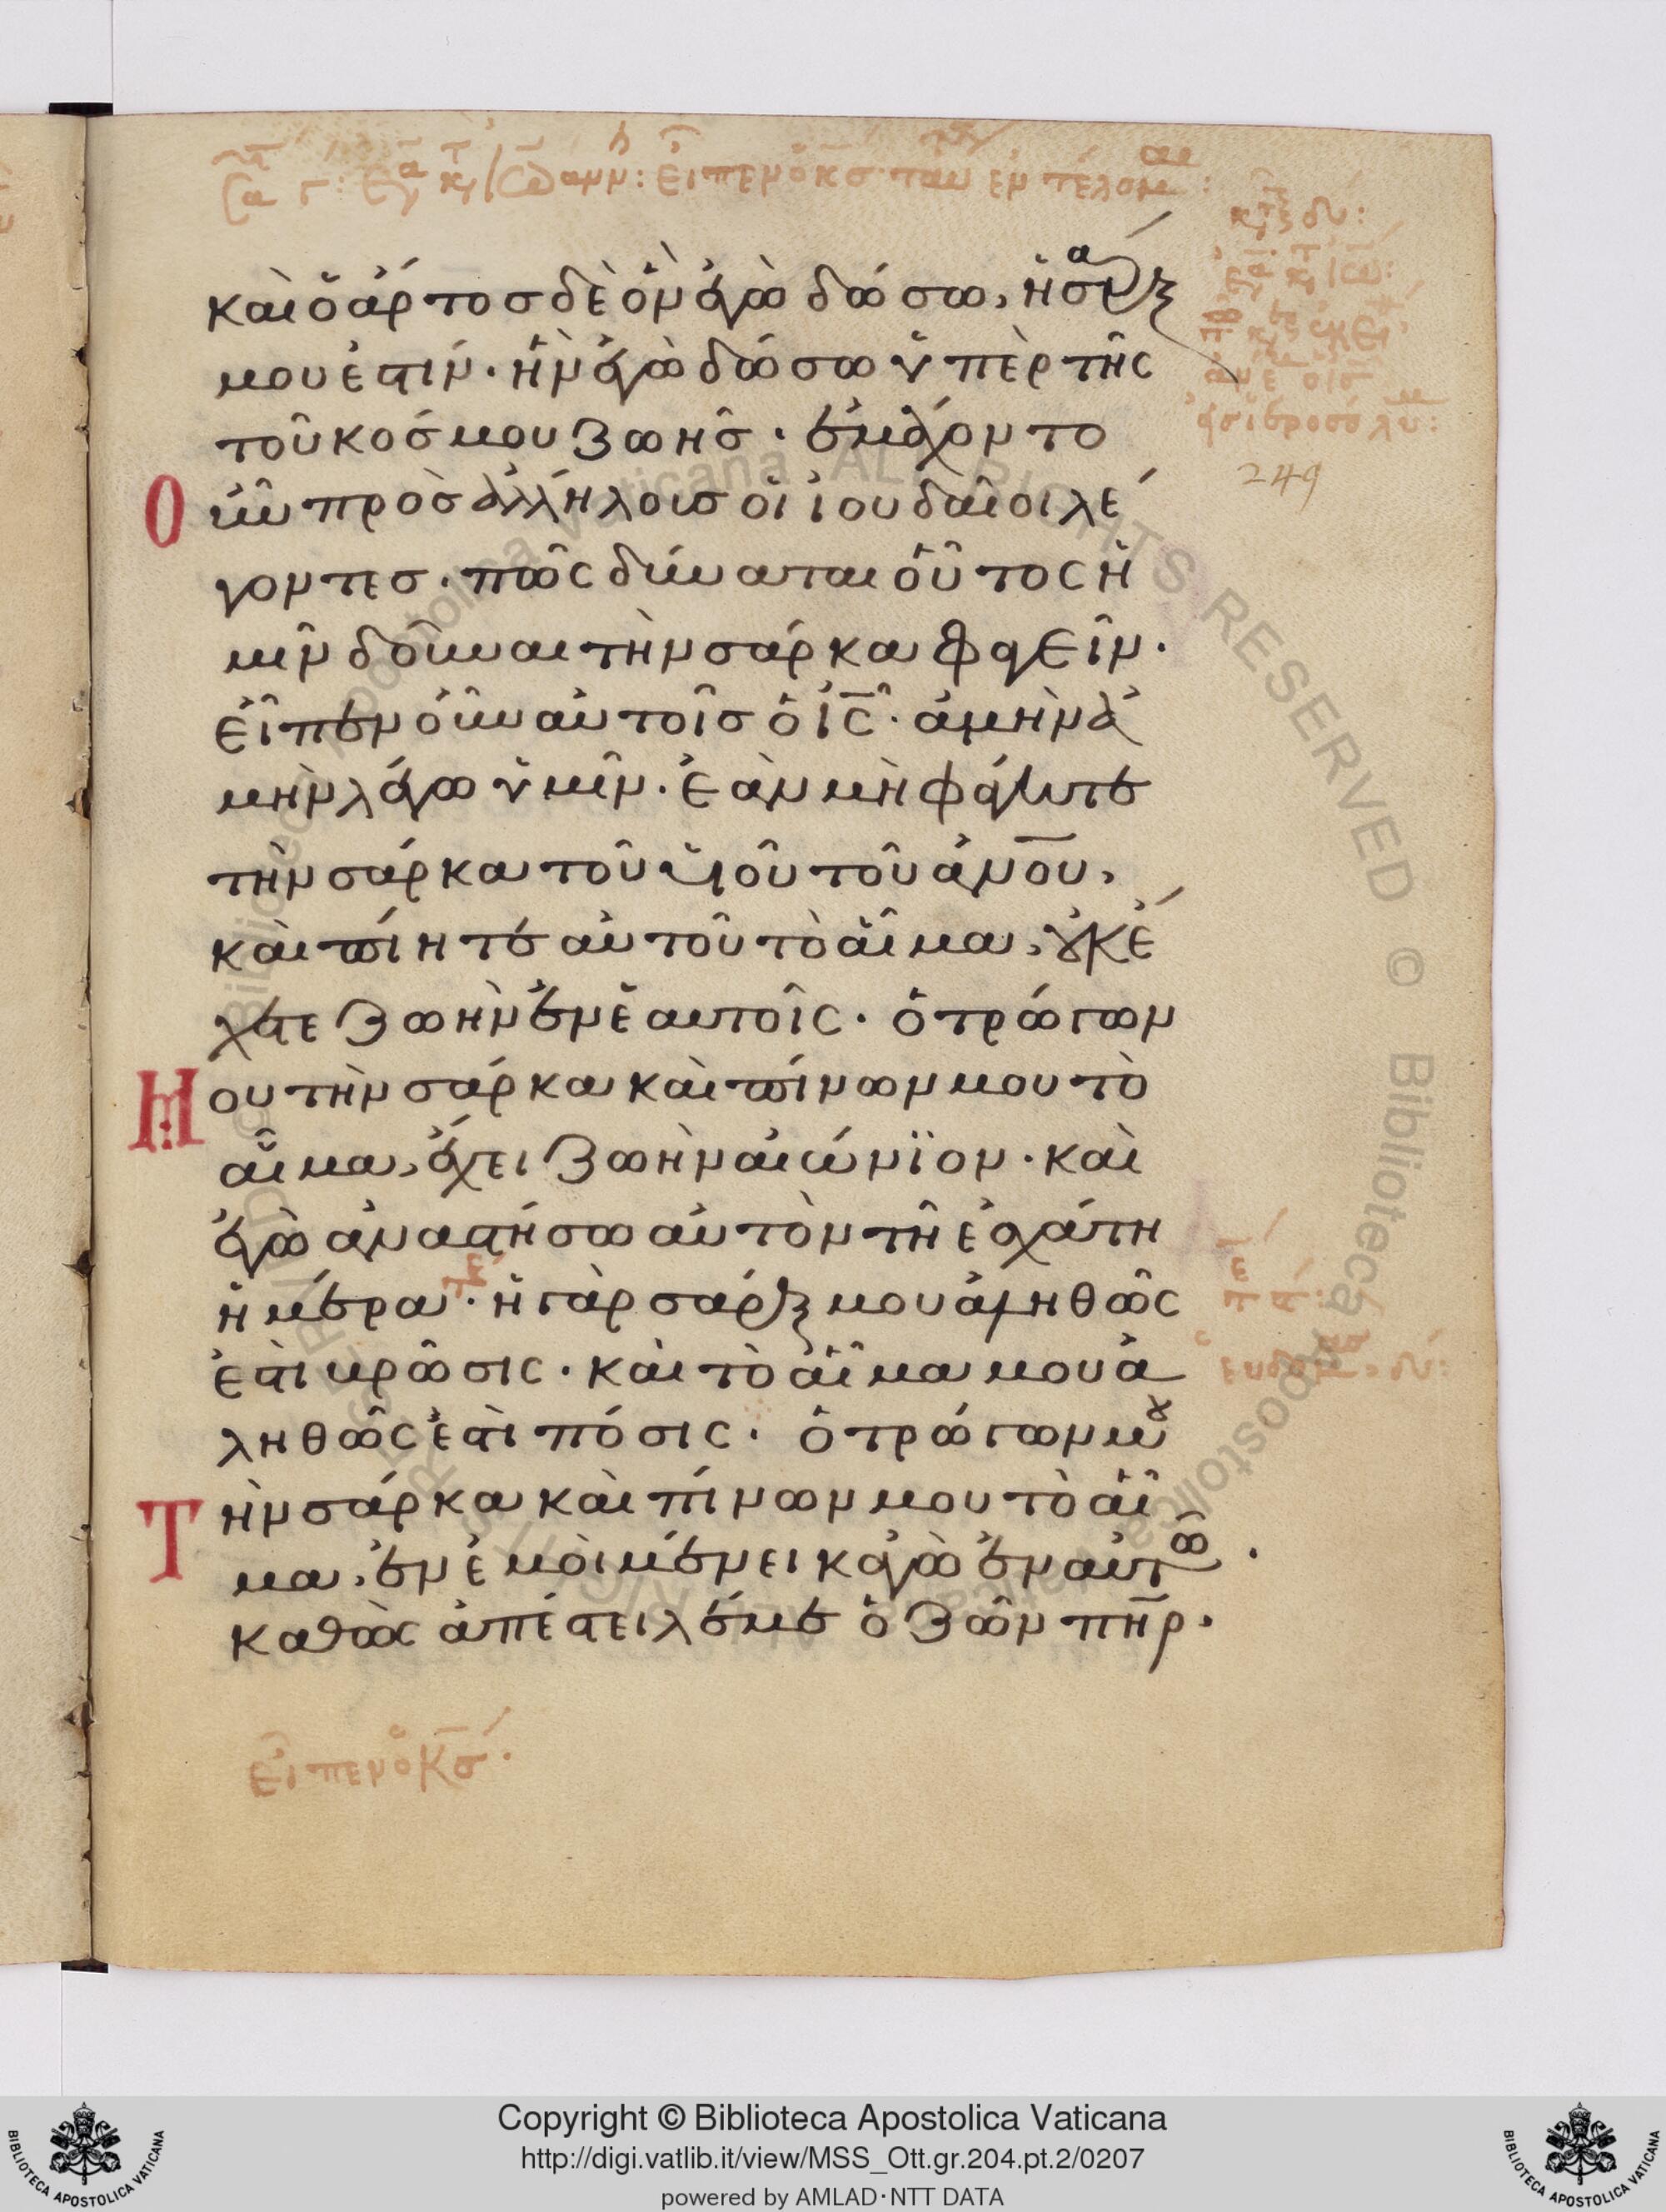 καὶ ὁ ἄρτος δὲ ὃν ἐγὼ δώσω, ἡ σάρξ
μου ἐστιν. ἣν ἐγὼ δώσω ὑπὲρ τῆς
τοῦ κόσμου ζωῆς. ἐμάχοντο
Οὖν πρὸς ἀλλήλους οἱ ἰουδαῖοι λέ
γοντες. πῶς δύναται οὗτος ἡ
μῖν δοῦναι τὴν σάρκα φαγεῖν.
εἶπεν οὖν αὐτοῖς ὁ ἰς. ἀμὴν ἀ
μὴν λέγω ὑμῖν. ἐὰν μὴ φάγητε
τὴν σάρκα τοῦ υἱοῦ τοῦ ἀνου,
καὶ πίητε αὐτοῦ τὸ αἷμα, οὐκ ἔ
χετε ζωὴν ἐν ἑαυτοῖς. ὁ τρώγων
Μου τὴν σάρκα καὶ πίνων μου τὸ
αἷμα, ἔχει ζωὴν αἰώνϊον. καὶ
ἐγὼ ἀναστήσω αὐτὸν τῆ ἐσχάτη
ἡμέρα. ἡ γὰρ σάρξ μου ἀληθῶς
ἐστι βρῶσις. καὶ τὸ αἷμα μου ἀ
ληθῶς ἐστὶ πόσις. ὁ τρώγων μου
Τὴν σάρκα καὶ πίνων μου τὸ αἷ
μα, ἐν ἐμοὶ μένει κἀγὼ ἐν αὐτῶ.
καθὼς ἀπέστειλέ με ὁ ζῶν πηρ.
εἶπεν ὁ κς.
249
Copyright © Biblioteca Apostolica Vaticana
http://digi.vatlib.it/view/MSS_Ott.gr.204.pt.2/0207
powered by AMLAD·NTT DATA
BIBLIOTECA APOSTOLICA VATICANA
BIBLIOTECA APOSTOLICA VATICANA